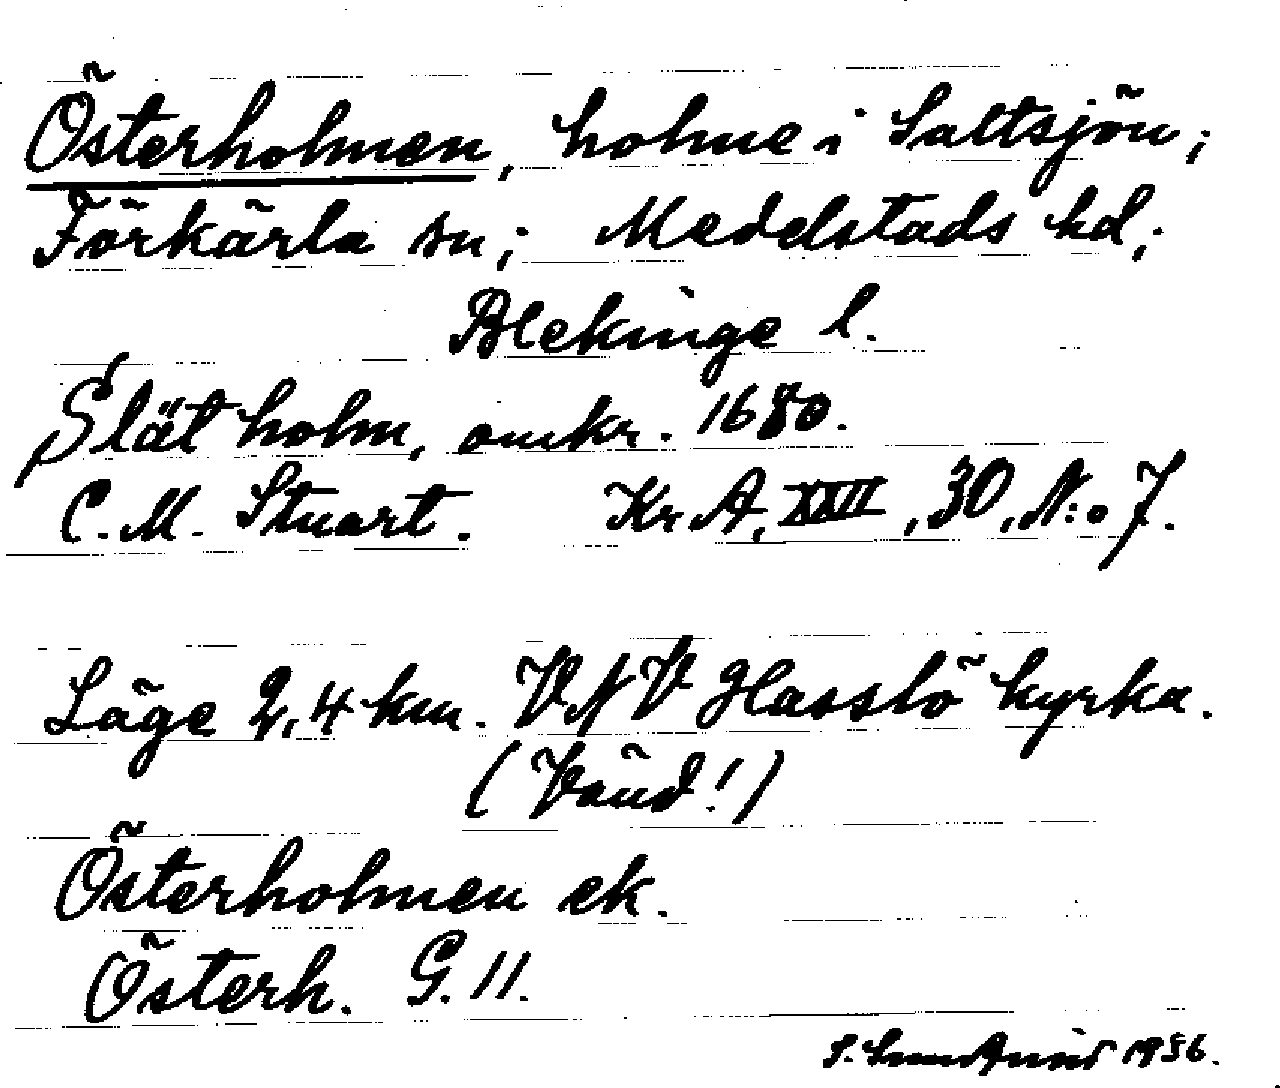 Österholmen, holme i Saltsjön;
Förkärla sn; Medelstads hd;
Blekinge l.
Slätholm, omkr. 1680.
C. M. Stuart. Kr A, XXII, 30, N:o 7.
Läge 2,4 km. VNV Hasslö kyrka.
(Vänd!)
Österholmen ek.
Österh. G. 11.
1956.